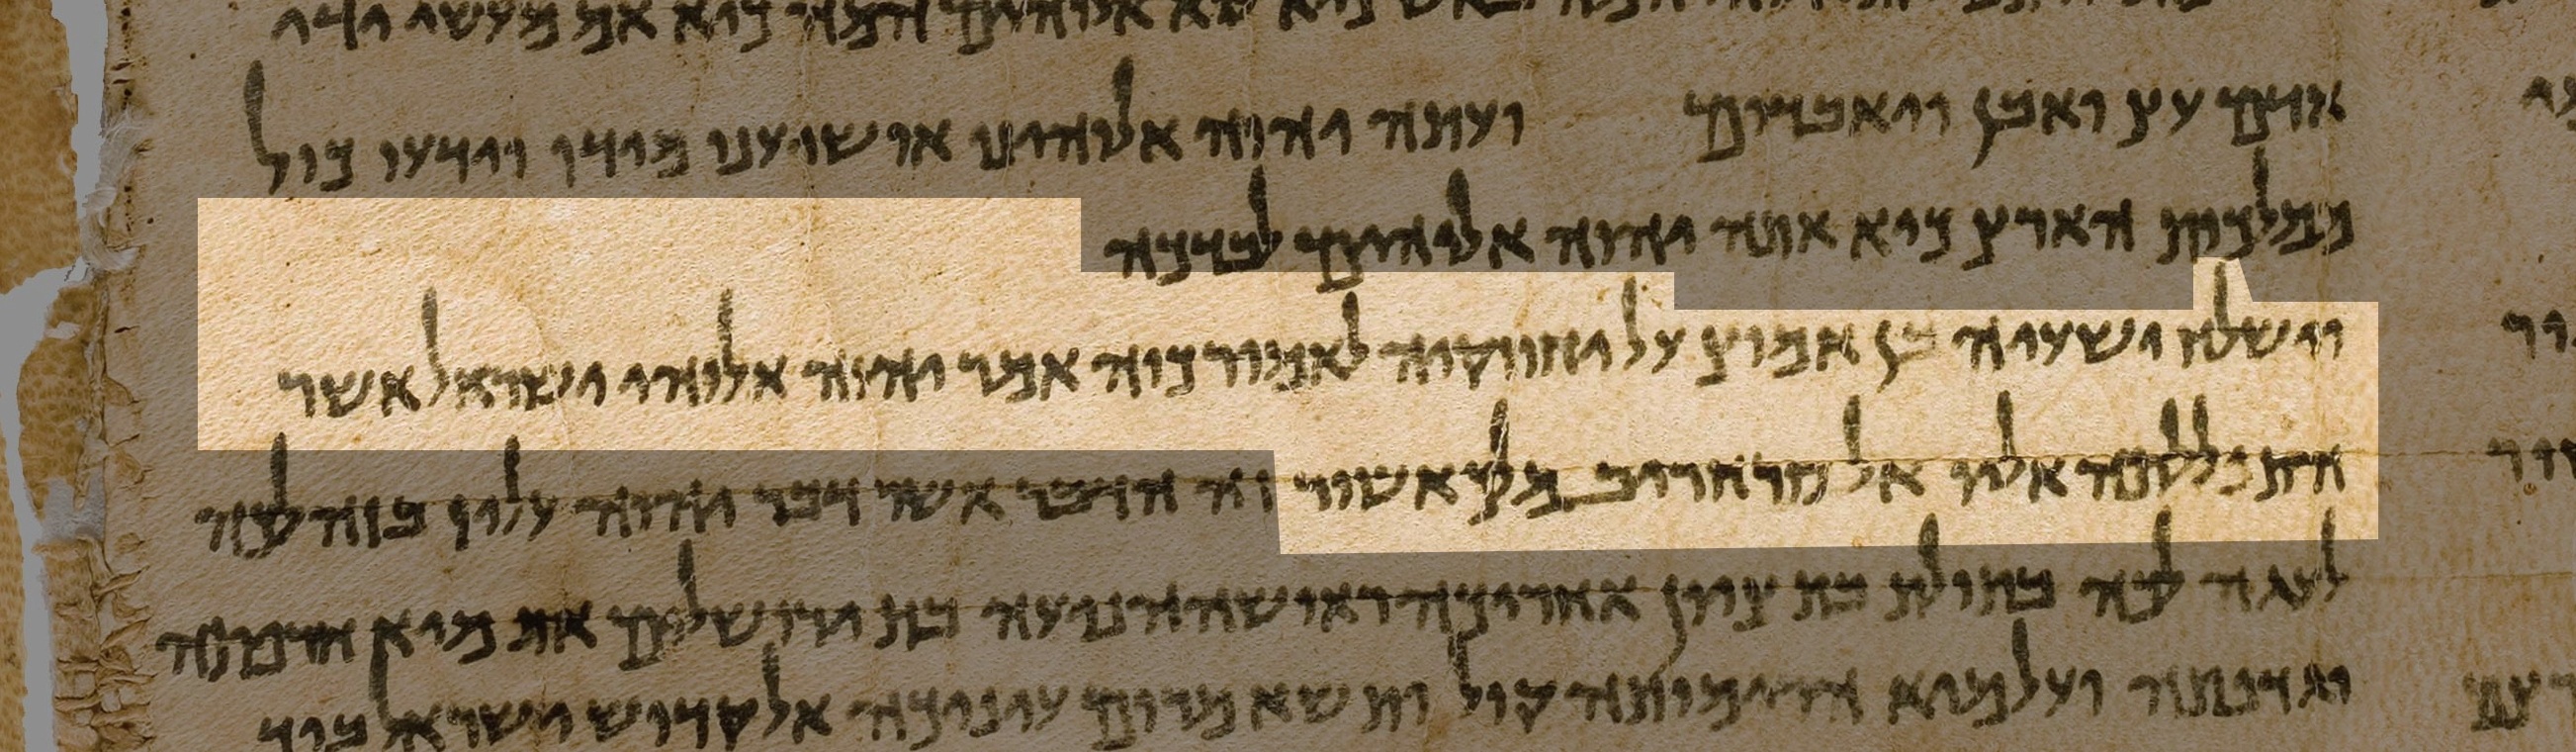 באש כיא לוא אלוהים המה כיא אם מעשי ידי
אדם עץ ואבן ויאבדום ועתה יהוה אלוהינו אושיענו מידו וידעו כול
ממלכות הארץ כיא אתה יהוה אלוהים לבדכה
וישלח ישעיה בן אמוץ על יחזוקיה לאמור כוה אמר יהוה אלוהי ישראל אשר
התפללתה אליו אל סנחריב מלך אשור זה הדבר אשר דבר יהוה עליו בזה לכה
לעגה לכה בתולת בת ציון אחריכה ראושה הניעה בת ירושלים את מיא חרפתה
וגדפתה ועל מיא הרימותה קול ותשא מרום עיניכה אל קדוש ישראל ביד